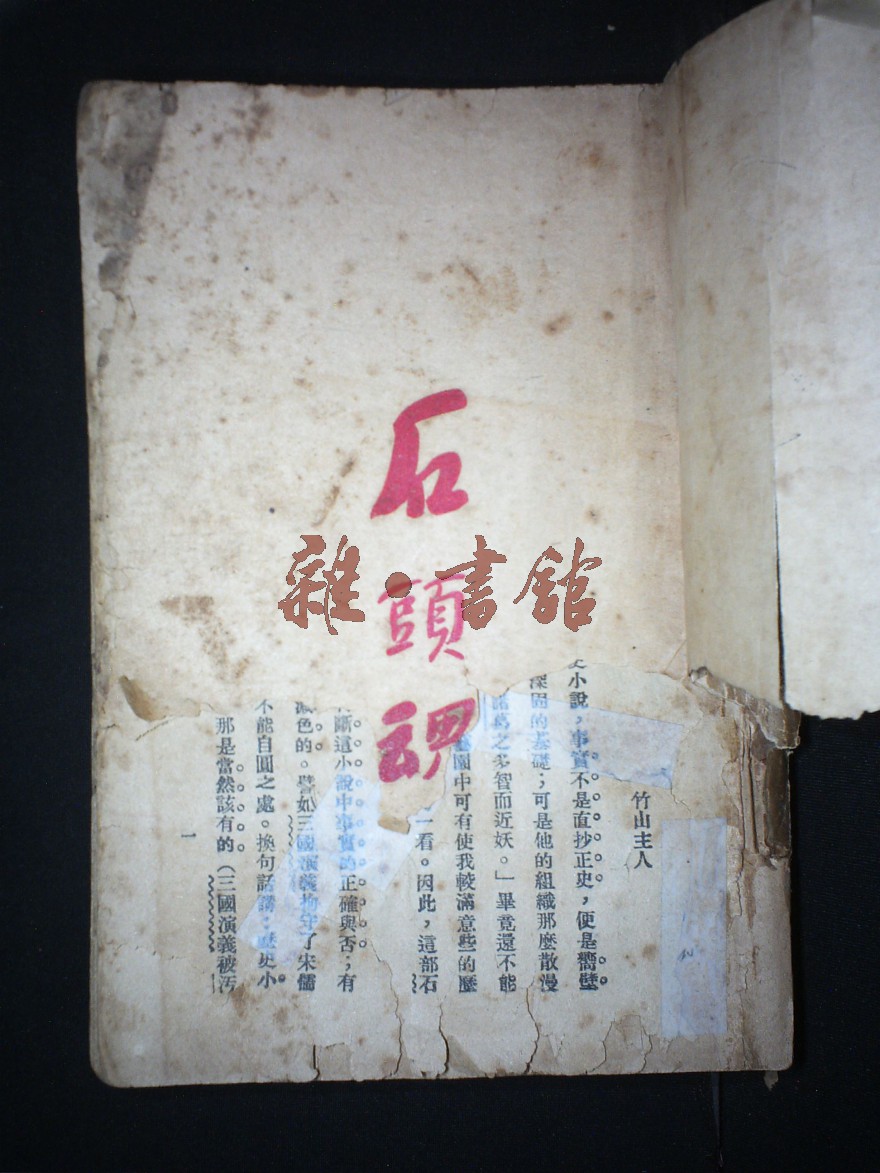 石頭魂
雜·書館
竹山主人
小說，事實不是直抄正史，便是嚮壁
深固的基礎；可是他的組織那麼散漫
諸葛之多智而近妖。」畢竟還不能
園中可有使我較滿意些的歷
一看。因此，這部石
斷這小說中事實的正確與否；有
色的。譬如三國演義拘守了宋儒
不能自圓之處。換句話講，歷史小
那是當然該有的（三國演義被汚
一